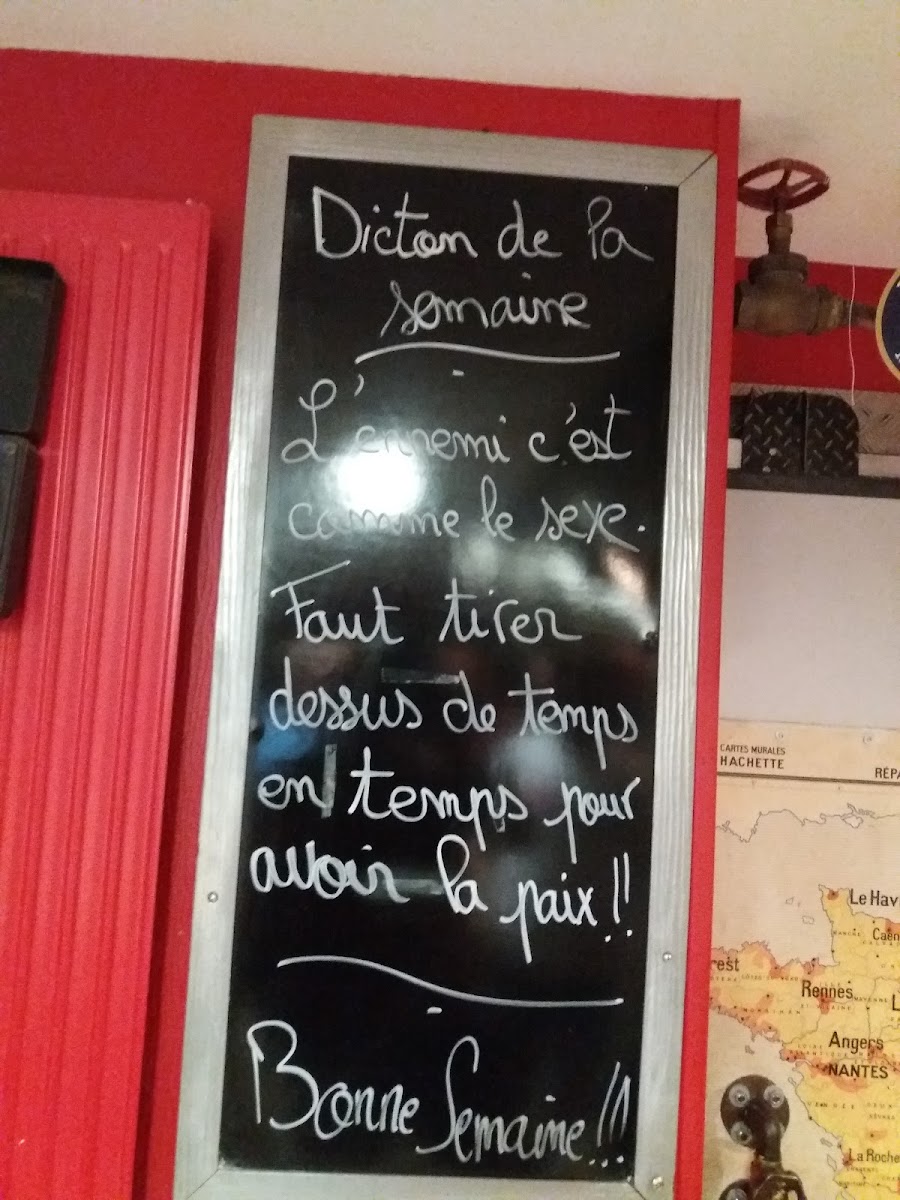 Dicton de la
semaine
L'ennemi c'est
comme le sexe.
Faut tirer
dessus de temps
en temps pour
avoir la paix !!
Bonne Semaine !!!
CARTES MURALES
HACHETTE
Le Hav
Caen
Rennes
Angers
NANTES
La Roche